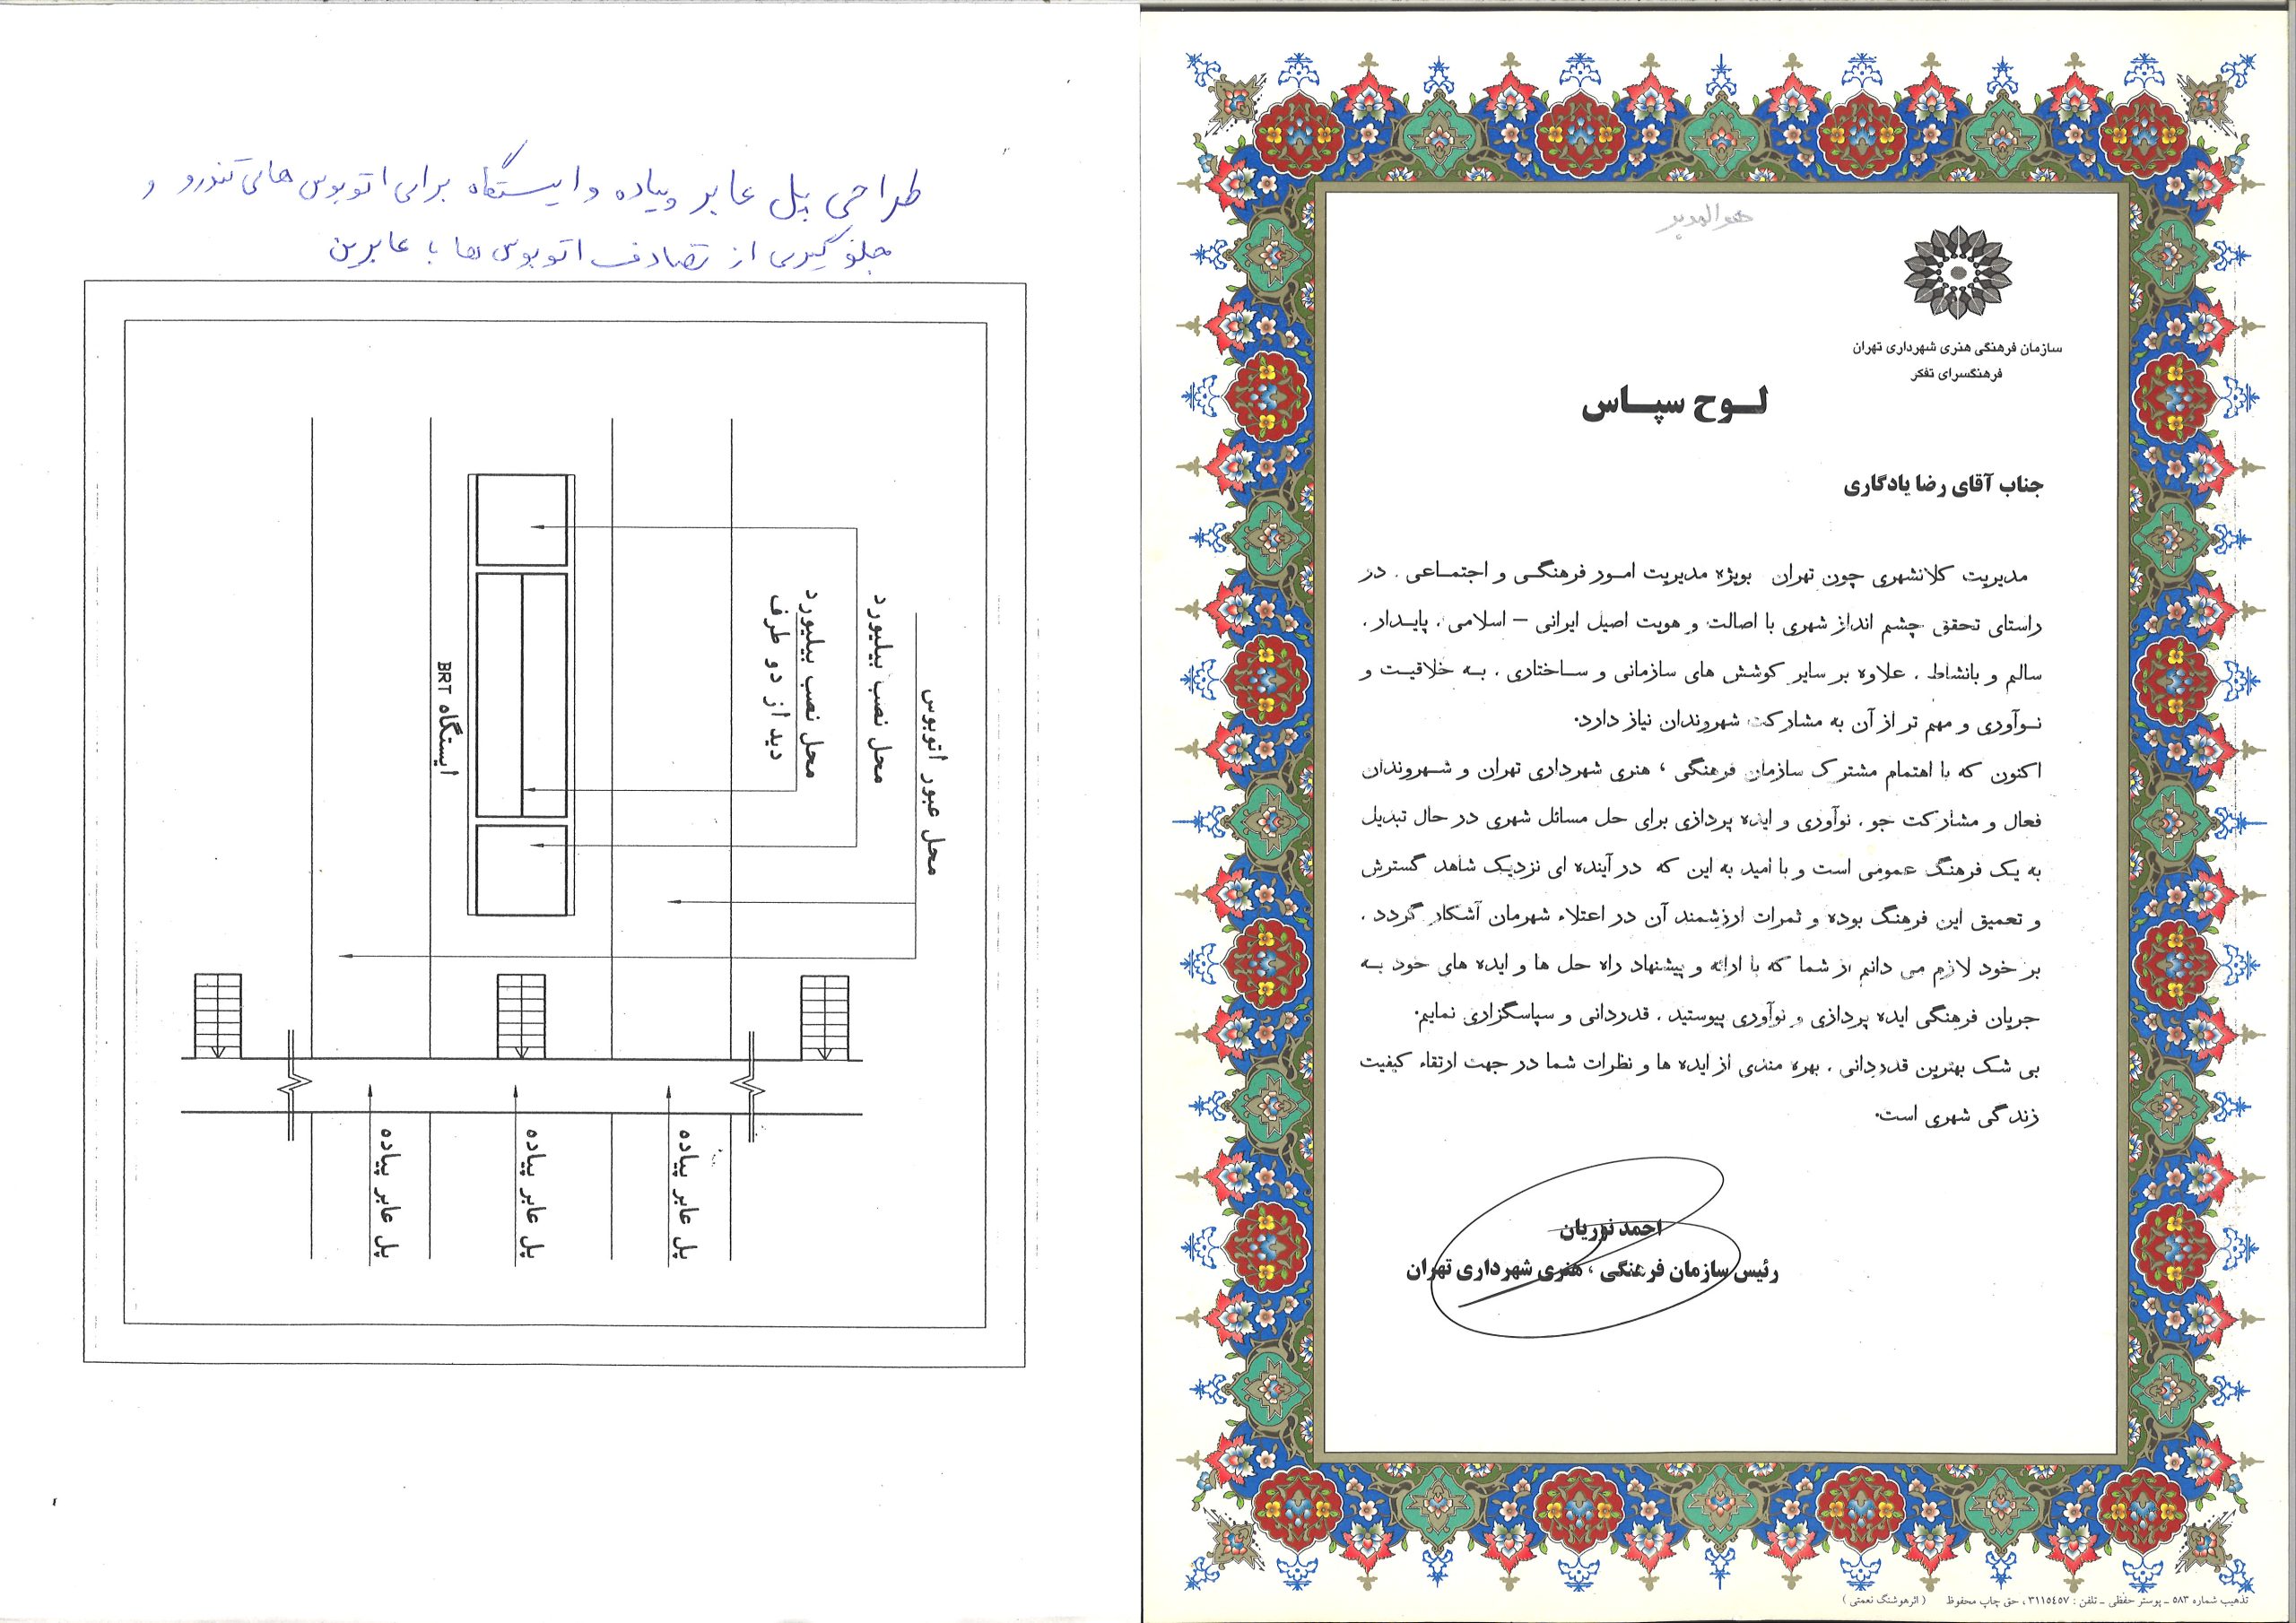 هوالمدبر
سازمان فرهنگی هنری شهرداری تهران
فرهنگسرای تفکر
لوح سپاس
جناب آقای رضا یادگاری
مدیریت کلانشهری چون تهران بویژه مدیریت امور فرهنگی و اجتماعی ، در
راستای تحقق چشم انداز شهری با اصالت و هویت اصیل ایرانی – اسلامی ، پایدار ،
سالم و بانشاط ، علاوه بر سایر کوشش های سازمانی و ساختاری ، به خلاقیت و
نوآوری و مهم تر از آن به مشارکت شهروندان نیاز دارد.
اکنون که با اهتمام مشترک سازمان فرهنگی ، هنری شهرداری تهران و شهروندان
فعال و مشارکت جو ، نوآوری و ایده پردازی برای حل مسائل شهری در حال تبدیل
به یک فرهنگ عمومی است و با امید به این که در آینده ای نزدیک شاهد گسترش
و تعمیق این فرهنگ بوده و ثمرات ارزشمند آن در اعتلاء شهرمان آشکار گردد ،
بر خود لازم می دانم از شما که با ارائه و پیشنهاد راه حل ها و ایده های خود به
جریان فرهنگی ایده پردازی و نوآوری پیوستید ، قدردانی و سپاسگزاری نمایم.
بی شک بهترین قدردانی ، بهره مندی از ایده ها و نظرات شما در جهت ارتقاء کیفیت
زندگی شهری است.
احمد نوریان
رئیس سازمان فرهنگی ، هنری شهرداری تهران
تذهیب شماره ۵۸۳ ـ پوستر حفظی ـ تلفن : ۳۱۱۵٤۵۷ ، حق چاپ محفوظ ( اثر هوشنگ نعمتی )
طراحی پل عابر پیاده و ایستگاه برای اتوبوس های تندرو و
جلوگیری از تصادف اتوبوس ها با عابرین
محل عبور اتوبوس
محل نصب بیلبورد
محل نصب بیلبورد
دید از دو طرف
ایستگاه BRT
پل عابر پیاده
پل عابر پیاده
پل عابر پیاده